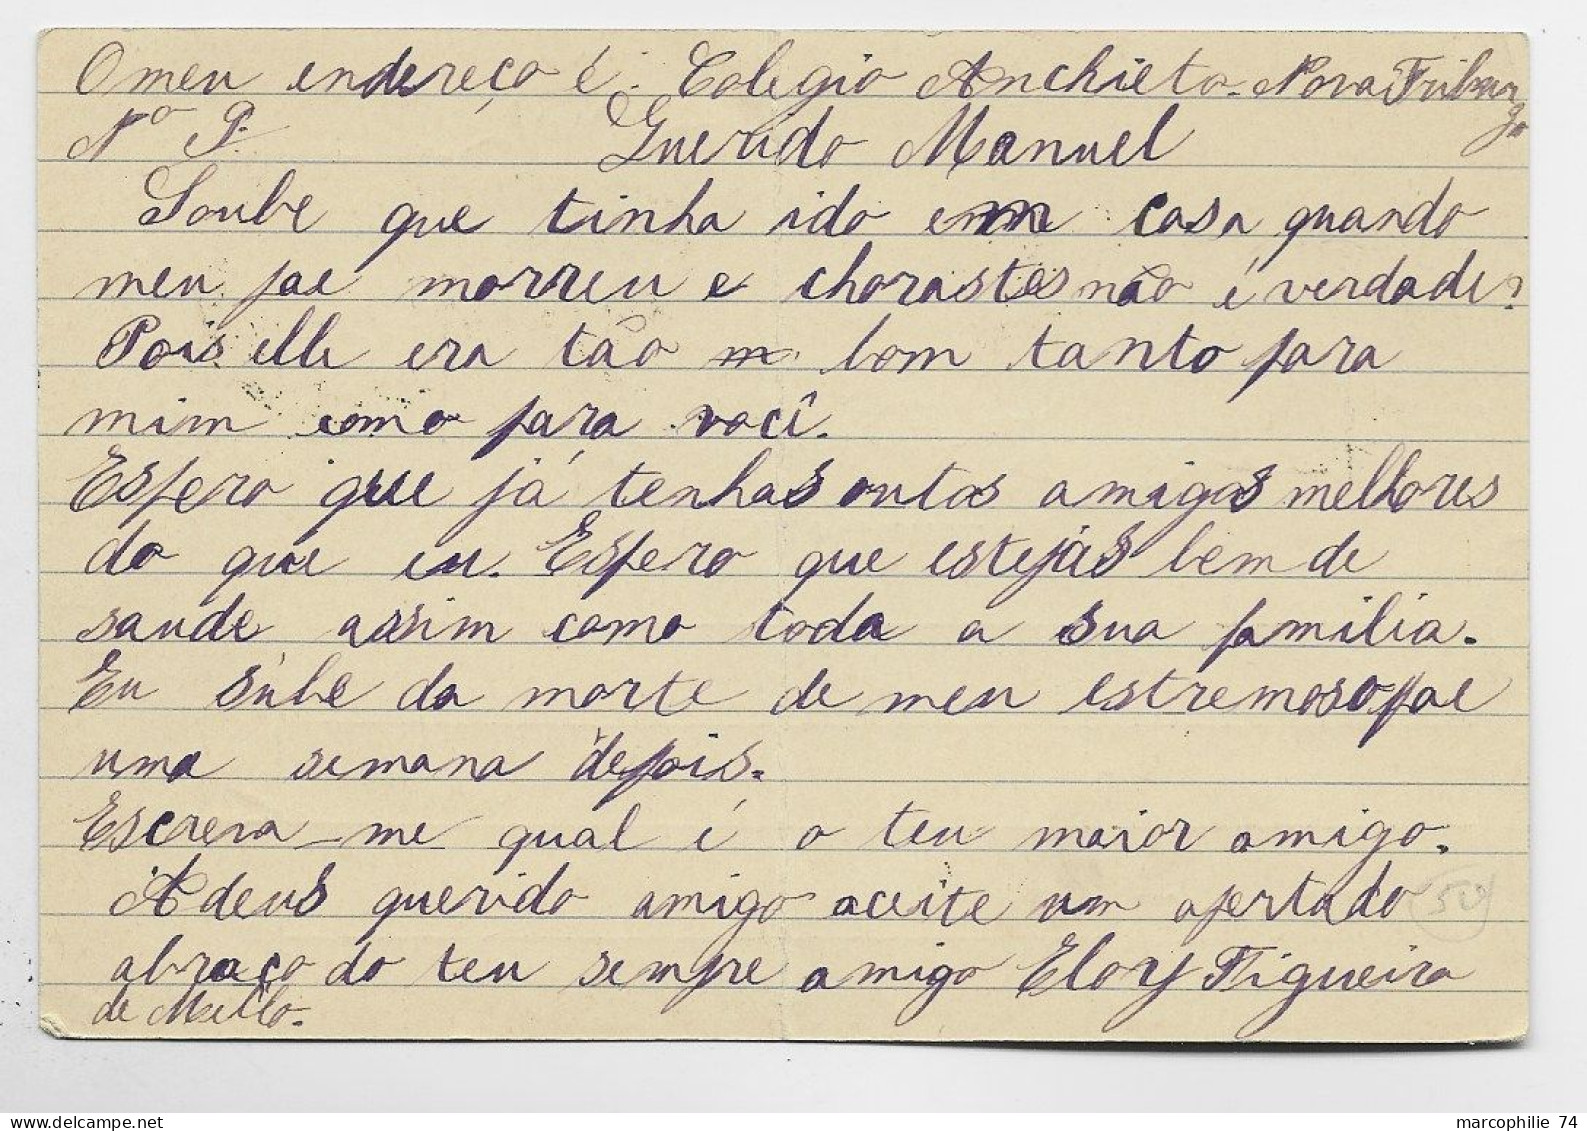 O meu endereço é. Colegio Anchieta. Nova Fribur
go
Nº P.
Querido Manuel
Soube que tinha ido em casa quando
meu pae morreu e chorastes não é verdade?
Pois elle era tão bom tanto para
mim como para você.
Espero que já tenhas outos amigos melhores
do que eu. Espero que estejas bem de
saude assim como toda a sua familia.
Eu súbe da morte de meu estremoso pae
uma semana depois.
Escreva-me qual é o teu maior amigo.
Adeus querido amigo aceite um apertado
abraço do teu sempre amigo Eloy Figueira
de Mello.
50
marcophilie 74